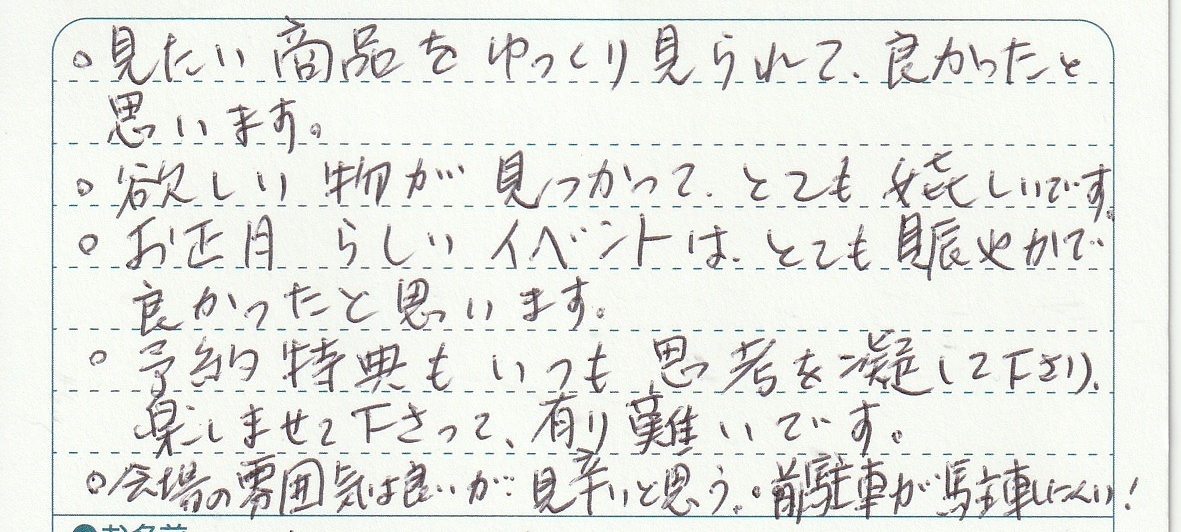 。見たい商品をゆっくり見られて、良かったと
思います。
。欲しい物が見つかって、とても嬉しいです。
。お正月らしいイベントは、とても賑やかで
良かったと思います。
。予約特典もいつも思考を凝して下さり、
楽しませて下さって、有り難いです。
。会場の雰囲気は良いが、見辛いと思う。。前駐車が駐車しにくい!
●お名前